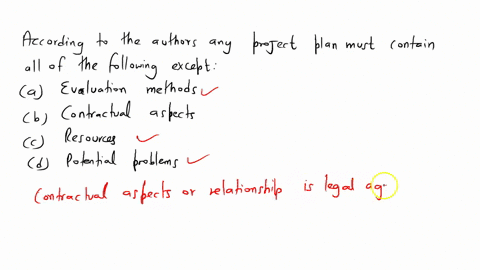 According to the authors any project plan must contain
all of the following except:
(a) Evaluation methods
(b) Contractual aspects
(c) Resources
(d) Potential problems
Contractual aspects or relationship is legal ag